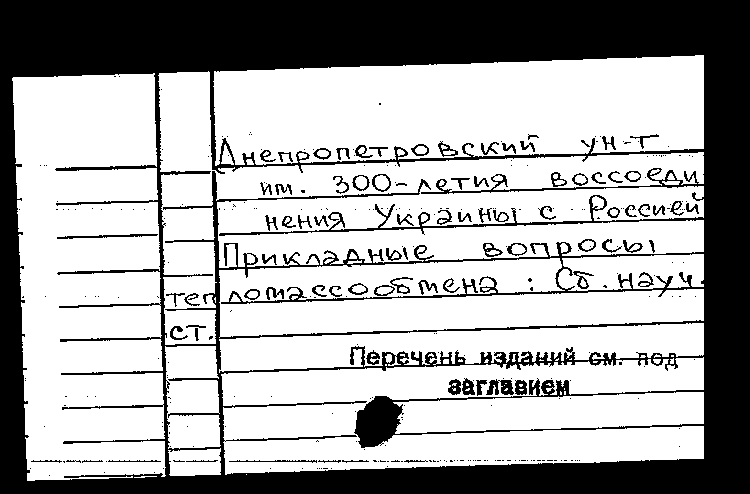 Днепропетровский ун-т
им. 300-летия воссоеди
нения Украины с Россией
Прикладные вопросы
тепломассообмена : Сб. науч.
ст.
Перечень изданий см. под
заглавием